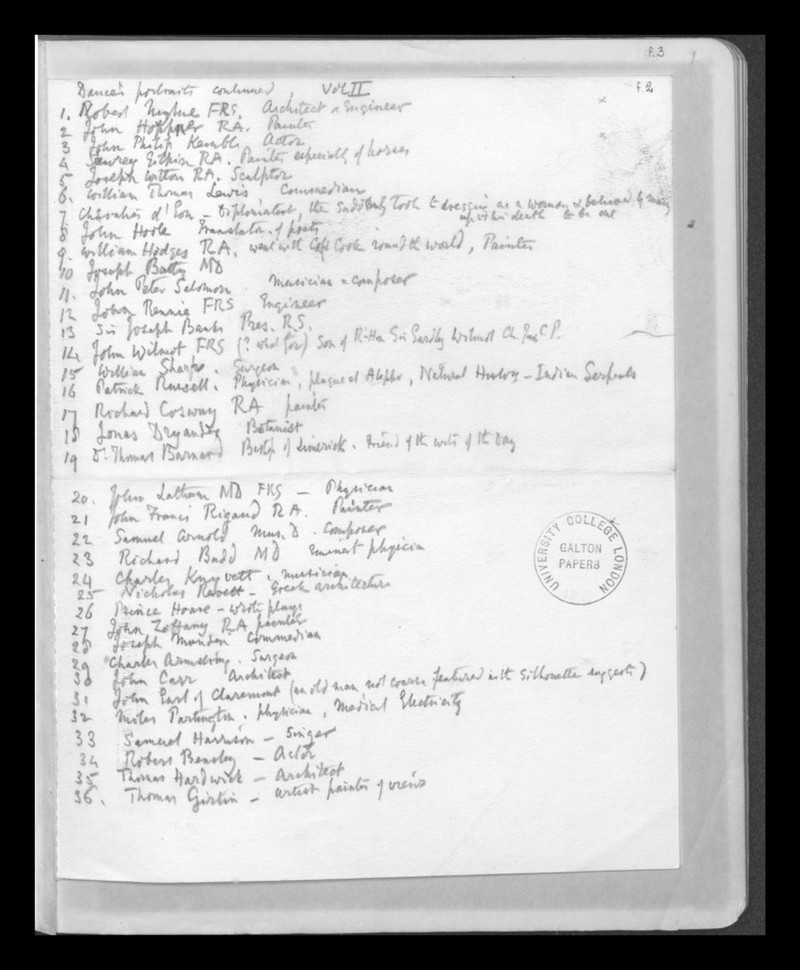 f.3
f.2
Dance's portraits continued, Vol II
1. Robert Mylne FRS. Architect & Engineer
2 John Hoppner RA. Painter
3 John Philip Kemble Actor
4 Sawrey Gilpin RA. Painter especially of horses
5 Joseph Wilton RA. Sculptor
6. William Thomas Lewis Commedian
7 Chevalier d'Eon - Diplomatist, then suddenly took to dressing as a woman & believed by many
up to his death to be one
8 John Hoole Translator of poets
9. William Hodges RA. went with Capt Cook round the world, Painter
10 Joseph Batty MD
11. John Peter Salomon. Musician & composer
12 John Rennie FRS Engineer
13 Sir Joseph Banks Pres. R.S.
14 John Wilmot FRS (? what for) Son of Rt Hon Sir Eardly Wilmot Ch. Jus C.P.
15 William Sharp. Surgeon
16 Patrick Russell. Physician, plague at Aleppo, Natural History - Indian Serpents
17 Richard Cosway RA painter
18 Jonas Dryander Botanist
19 Dr Thomas Barnard Bishop of Limerick. Friend of the wits of the day
20. John Latham MD FRS - Physician
21 John Francis Rigaud RA. Painter
22 Samuel Arnold Mus. D. Composer
23 Richard Budd MD Eminent physician
24 Charles Knyvett, musician
25 Nicholas Revett - Greek architecture
26 Prince Hoare - wrote plays
27 John Zoffany RA painter
28 Joseph Munden Commedian
29 Charles Armstrong. Surgeon
30 John Carr Architect
31 John Earl of Claremont (an old man not coarse featured as the silhouette suggests)
32 Miles Partington. physician, Medical Electricity
33 Samuel Harrison - Singer
34 Robert Bensley - Actor
35 Thomas Hardwick - Architect
36. Thomas Girtin - artist painter of views
UNIVERSITY COLLEGE LONDON
GALTON
PAPERS